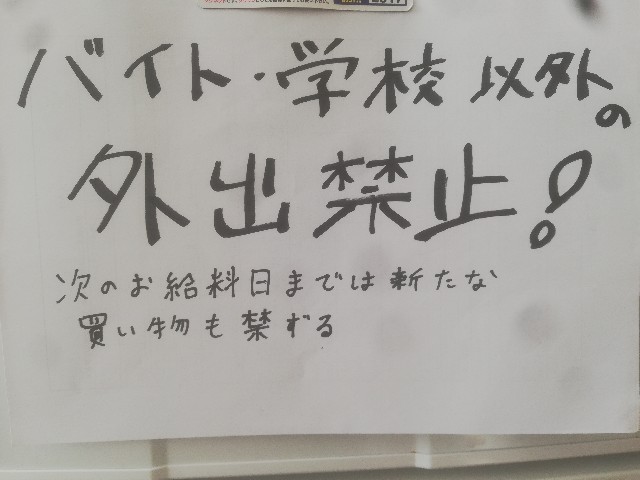 バイト・学校以外の
外出禁止!
次のお給料日までは新たな
買い物も禁ずる